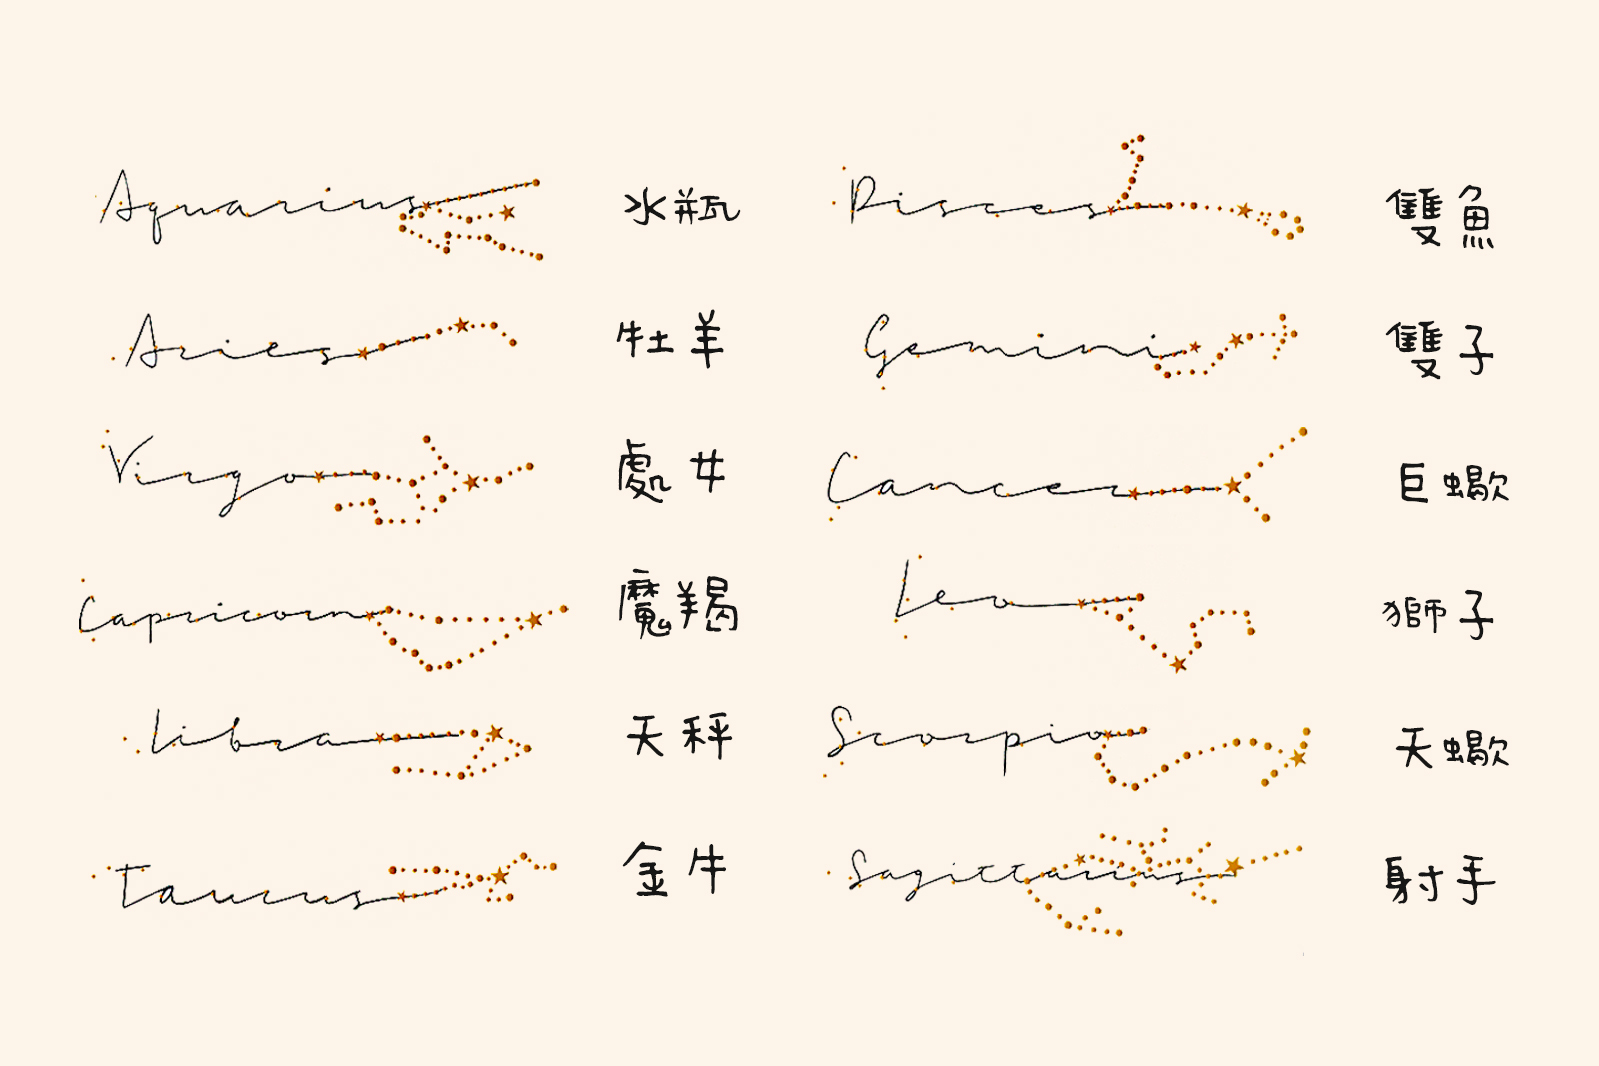 Aquarius 水瓶
Pisces 雙魚
Aries 牡羊
Gemini 雙子
Virgo 處女
Cancer 巨蠍
Capricorn 魔羯
Leo 獅子
Libra 天秤
Scorpio 天蠍
Taurus 金牛
Sagittarius 射手